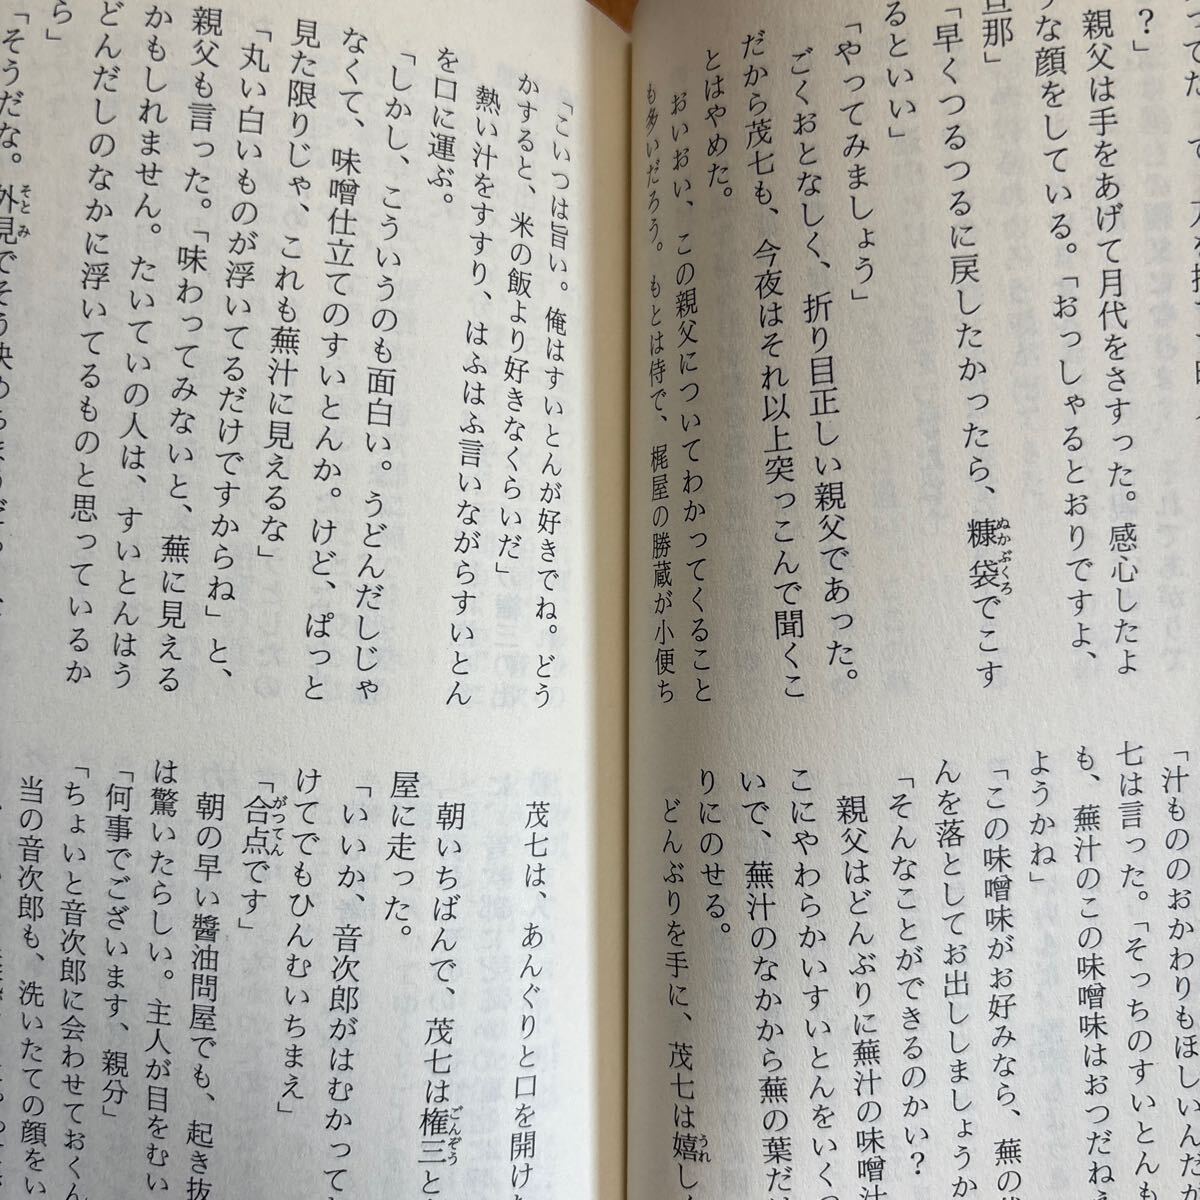 ？」
親父は手をあげて月代をさすった。感心したよ
うな顔をしている。「おっしゃるとおりですよ、
旦那」
「早くつるつるに戻したかったら、糠袋でこす
るといい」
「やってみましょう」
ごくおとなしく、折り目正しい親父であった。
だから茂七も、今夜はそれ以上突っこんで聞くこ
とはやめた。
おいおい、この親父についてわかってくること
も多いだろう。もとは侍で、梶屋の勝蔵が小便ち
「汁もののおかわりもほしいんだ
七は言った。「そっちのすいとんも
も、蕪汁のこの味噌味はおつだね
ようかね」
「この味噌味がお好みなら、蕪の
んを落としてお出ししましょうか
「そんなことができるのかい？
親父はどんぶりに蕪汁の味噌汁
こにやわらかいすいとんをいく
いで、蕪汁のなかから蕪の葉だ
りにのせる。
どんぶりを手に、茂七は嬉し
「こいつは旨い。俺はすいとんが好きでね。どう
かすると、米の飯より好きなくらいだ」
熱い汁をすすり、はふはふ言いながらすいとん
を口に運ぶ。
「しかし、こういうのも面白い。うどんだしじゃ
なくて、味噌仕立てのすいとんか。けど、ぱっと
見た限りじゃ、これも蕪汁に見えるな」
「丸い白いものが浮いてるだけですからね」と、
親父も言った。「味わってみないと、蕪に見える
かもしれません。たいていの人は、すいとんはう
どんだしのなかに浮いてるものと思っているか
ら」
「そうだな。外見でそう決め
茂七は、あんぐりと口を開け
朝いちばんで、茂七は権三と
屋に走った。
「いいか、音次郎がはむかって
けてでもひんむいちまえ」
「合点です」
朝の早い醬油問屋でも、起き抜
は驚いたらしい。主人が目をむい
「何事でございます、親分」
「ちょいと音次郎に会わせておくん
当の音次郎も、洗いたての顔をい